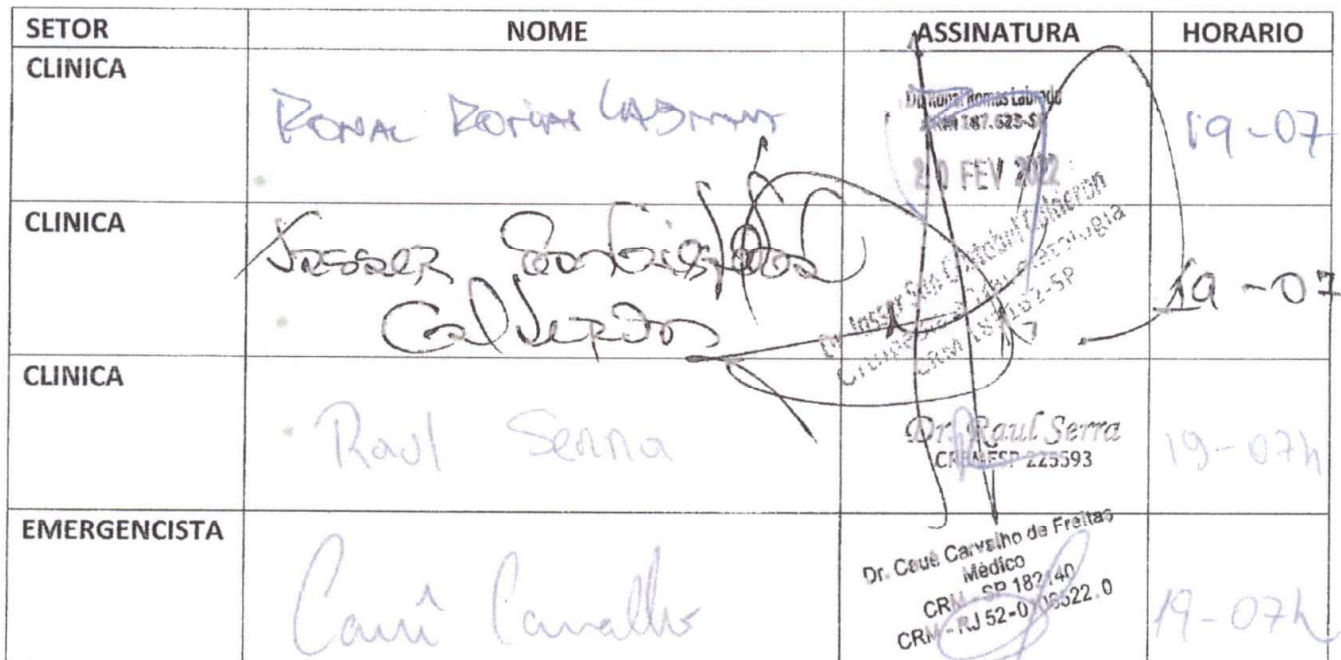 SETOR NOME ASSINATURA HORARIO
CLINICA
Ronal Romas Labrada
Dr. Ronal Romas Labrada
187.623-S
20 FEV 2022
19-07
CLINICA
Jasser Santiesteban
Calderon
Dr. Jasser
CRM
-SP
19-07
CLINICA
Raul Serra
Dr. Raul Serra
CREMESP 225593
19-07h
EMERGENCISTA
Cauê Carvalho
Dr. Cauê Carvalho de Freitas
Médico
CRM - SP 182140
CRM - RJ 52-0
19-07h